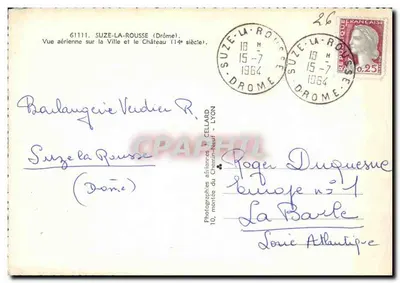 61111. SUZE-LA-ROUSSE (Drôme).
Vue aérienne sur la Ville et le Château (14e siècle).
26
SUZE-LA-ROUSSE
18 H
15-7
1964
DROME
SUZE-LA-ROUSSE
18 H
15-7
1964
DROME
FRANÇAISE
0,25
Boulangerie Verdier R.
Suze la Rousse
(Drôme)
Photographies aériennes CELLARD
10, montée du Chemin-Neuf - LYON
Roger Duquesne
n° 1
La Barle
Loire Atlantique